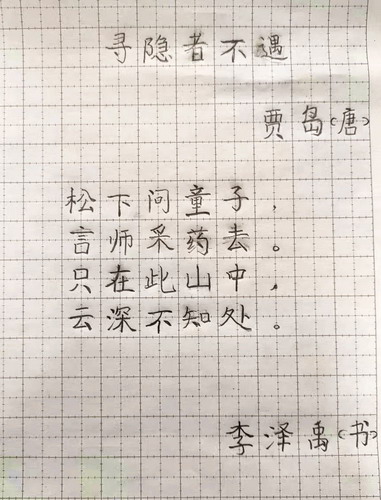 寻隐者不遇
贾岛(唐)
松下问童子，
言师采药去。
只在此山中，
云深不知处。
李泽禹(书)